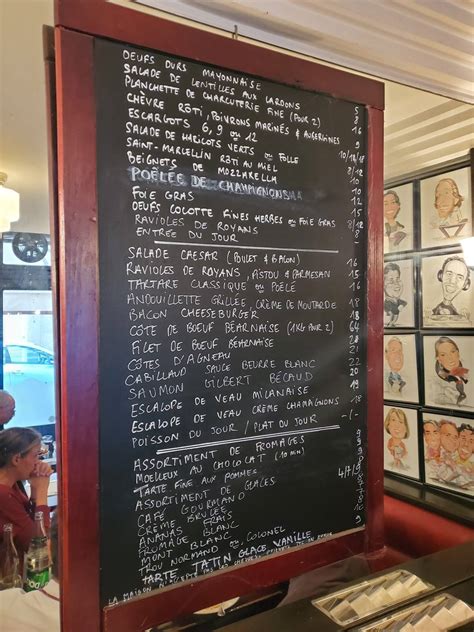 OEUFS DURS MAYONNAISE 5
SALADE DE LENTILLES AUX LARDONS 8
PLANCHETTE DE CHARCUTERIE FINE (POUR 2) 16
CHÈVRE RÔTI, POIVRONS MARINÉS & AUBERGINES 9
ESCARGOTS 6, 9 ou 12
SALADE DE HARICOTS VERTS ou FOLLE
SAINT-MARCELLIN RÔTI AU MIEL
BEIGNETS DE MOZZARELLA
POÊLÉE DE CHAMPIGNONS
FOIE GRAS
OEUFS COCOTTE FINES HERBES ou FOIE GRAS
RAVIOLES DE ROYANS
ENTRÉE DU JOUR
SALADE CAESAR (POULET & BACON) 16
RAVIOLES DE ROYANS, PISTOU & PARMESAN 15
TARTARE CLASSIQUE ou POÊLÉ 16
ANDOUILLETTE GRILLÉE, CRÈME DE MOUTARDE 18
BACON CHEESEBURGER 18
CÔTE DE BOEUF BÉARNAISE (1KG POUR 2) 64
FILET DE BOEUF BÉARNAISE
CÔTES D'AGNEAU 22
CABILLAUD SAUCE BEURRE BLANC 20
SAUMON GILBERT BÉCAUD
ESCALOPE DE VEAU MILANAISE
ESCALOPE DE VEAU CRÈME CHAMPIGNONS 18
POISSON DU JOUR / PLAT DU JOUR -/-
ASSORTIMENT DE FROMAGES 9
MOELLEUX AU CHOCOLAT (10 MIN) 9
TARTE FINE AUX POMMES 9
ASSORTIMENT DE GLACES 4/7/9
CAFÉ GOURMAND
CRÈME BRULÉE
ANANAS FRAIS
FROMAGE BLANC
MONT BLANC
TROU NORMAND ou COLONEL
TARTE TATIN GLACE VANILLE 9
LA MAISON